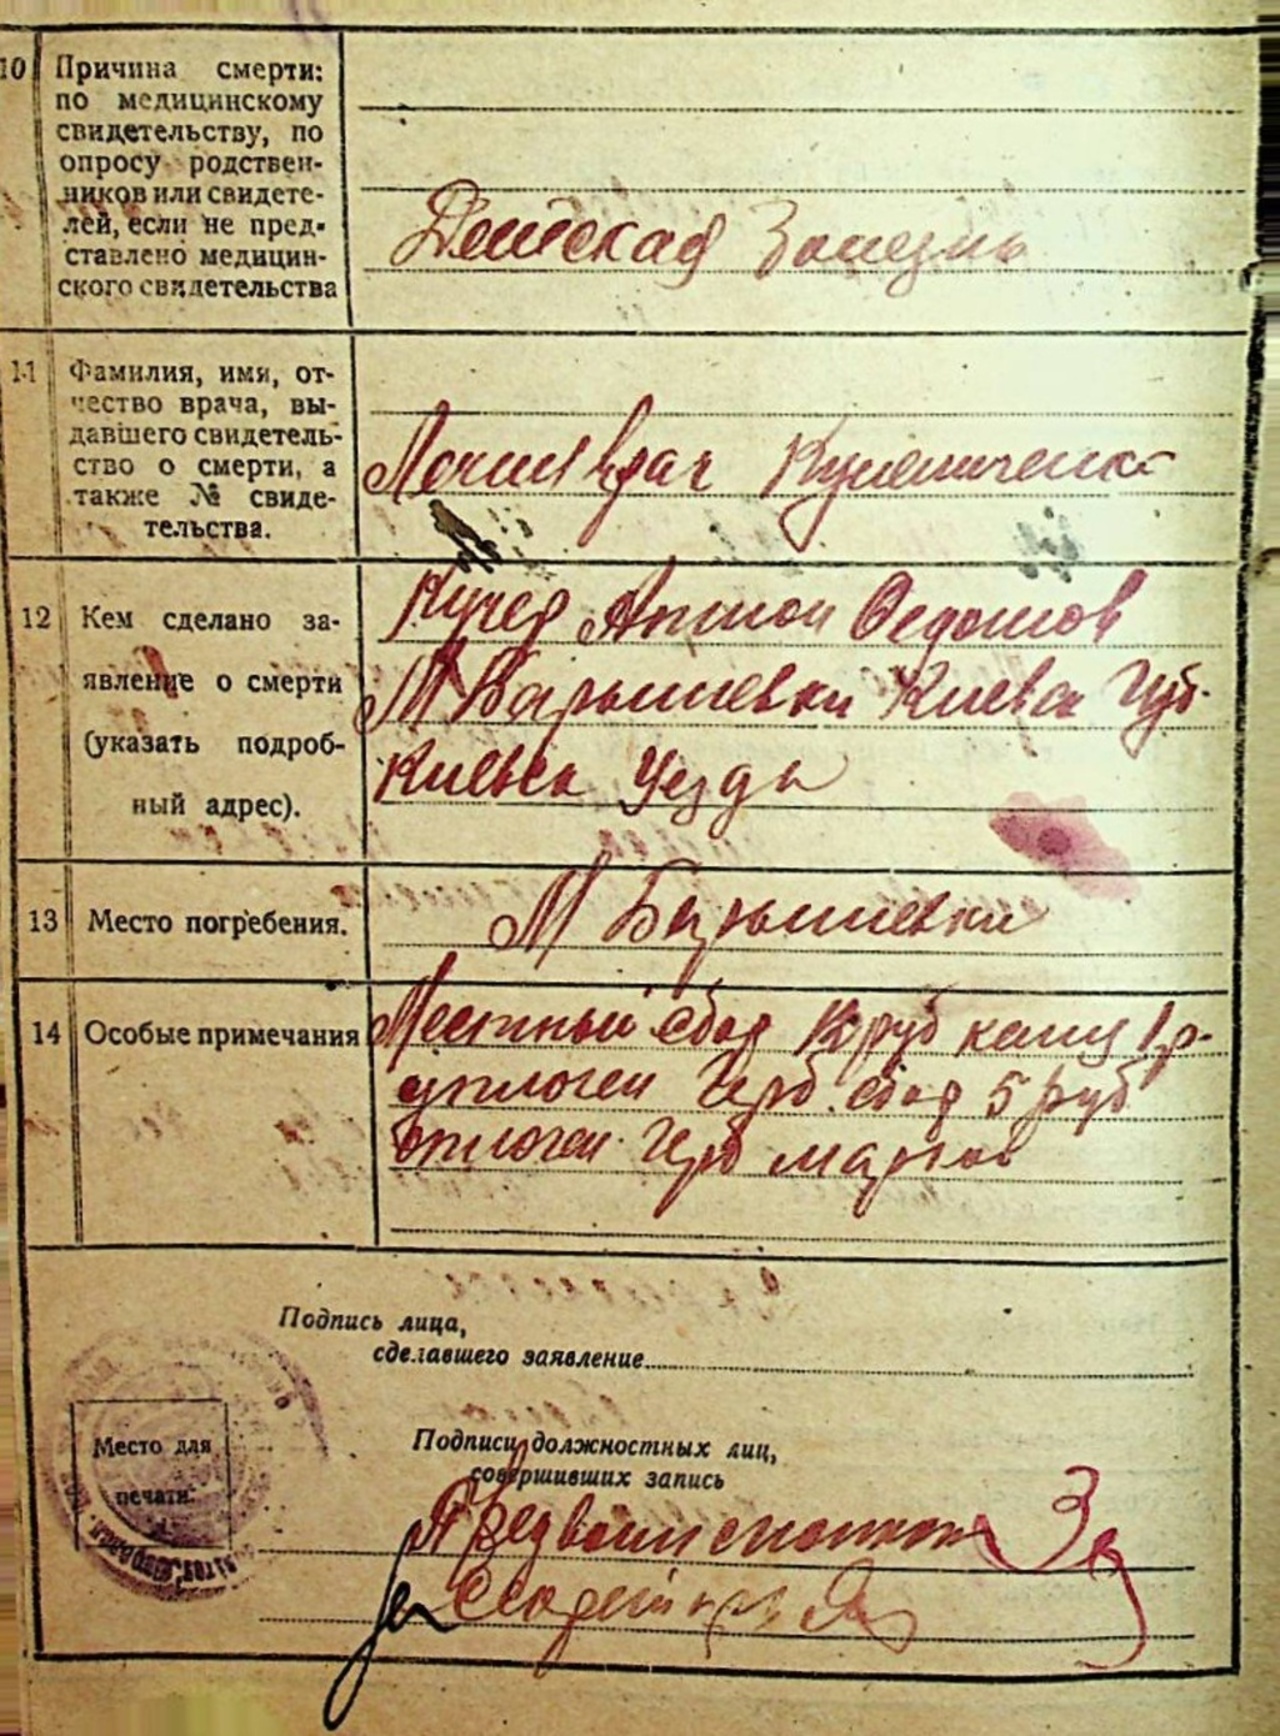 10 Причина смерти:
по медицинскому
свидетельству, по
опросу родствен-
ников или свидете-
лей, если не пред-
ставлено медицин-
ского свидетельства
Детская
11 Фамилия, имя, от-
чество врача, вы-
давшего свидетель-
ство о смерти, а
также № свиде-
тельства.
врач
12 Кем сделано за-
явление о смерти
(указать подроб-
ный адрес).
Кучер Антон Федотов
М Барышевки Киевск Губ.
Киевск Уезда
13 Место погребения.
М Барышевки
14 Особые примечания
Местный сбор руб 1 р.
уплочен Герб. сбор 5 руб
оплочен Герб марков
Подпись лица,
сделавшего заявление
Место для
печати.
Подписи должностных лиц,
совершивших запись